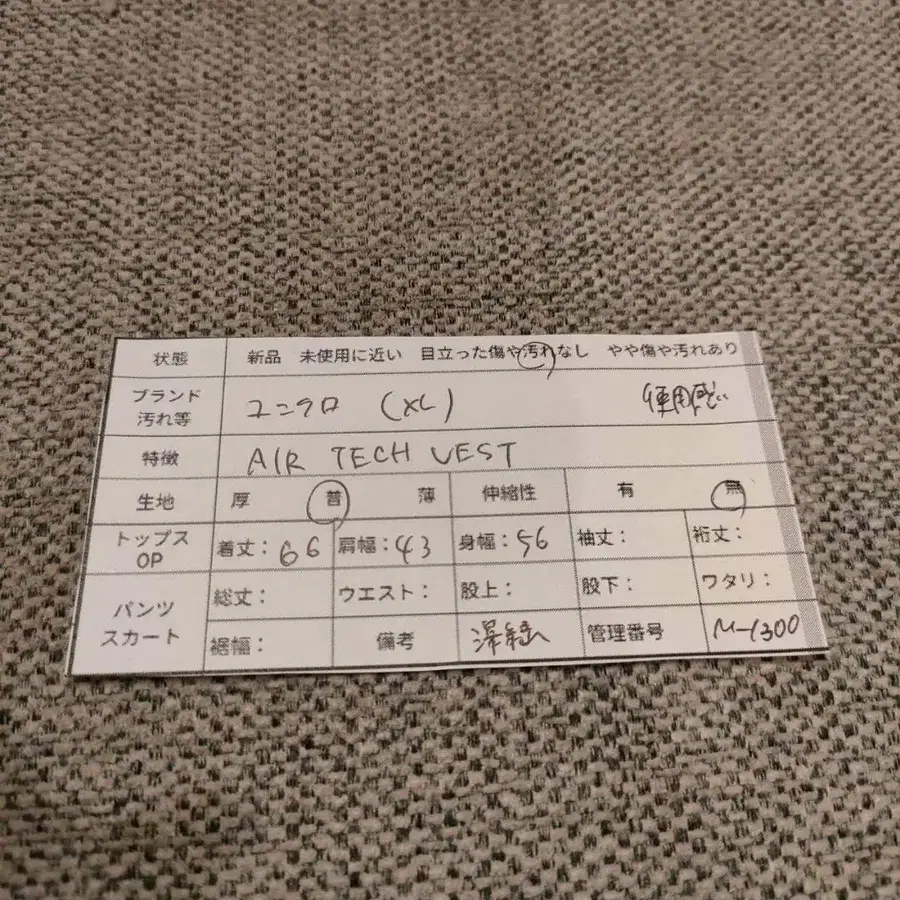 状態 新品 未使用に近い 目立った傷や汚れなし やや傷や汚れあり
ブランド
汚れ等 ユニクロ (XL) 使用感
特徴 AIR TECH VEST
生地 厚 普 薄 伸縮性 有 無
トップス
OP 着丈: 66 肩幅: 43 身幅: 56 袖丈: 裄丈:
パンツ
スカート 総丈: ウエスト: 股上: 股下: ワタリ:
裾幅: 備考 深緑 管理番号 M-1300